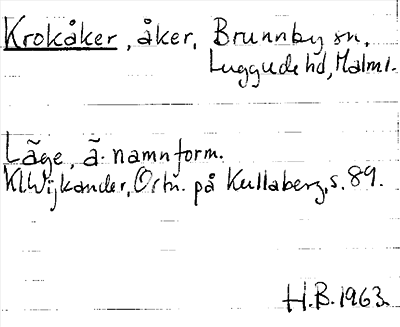 Krokåker, åker, Brunnby sn,
Luggude hd, Malml.
Läge, ä. namnform.
Kl. Wijkander, Ortn. på Kullaberg, s. 89.
H.B. 1963.